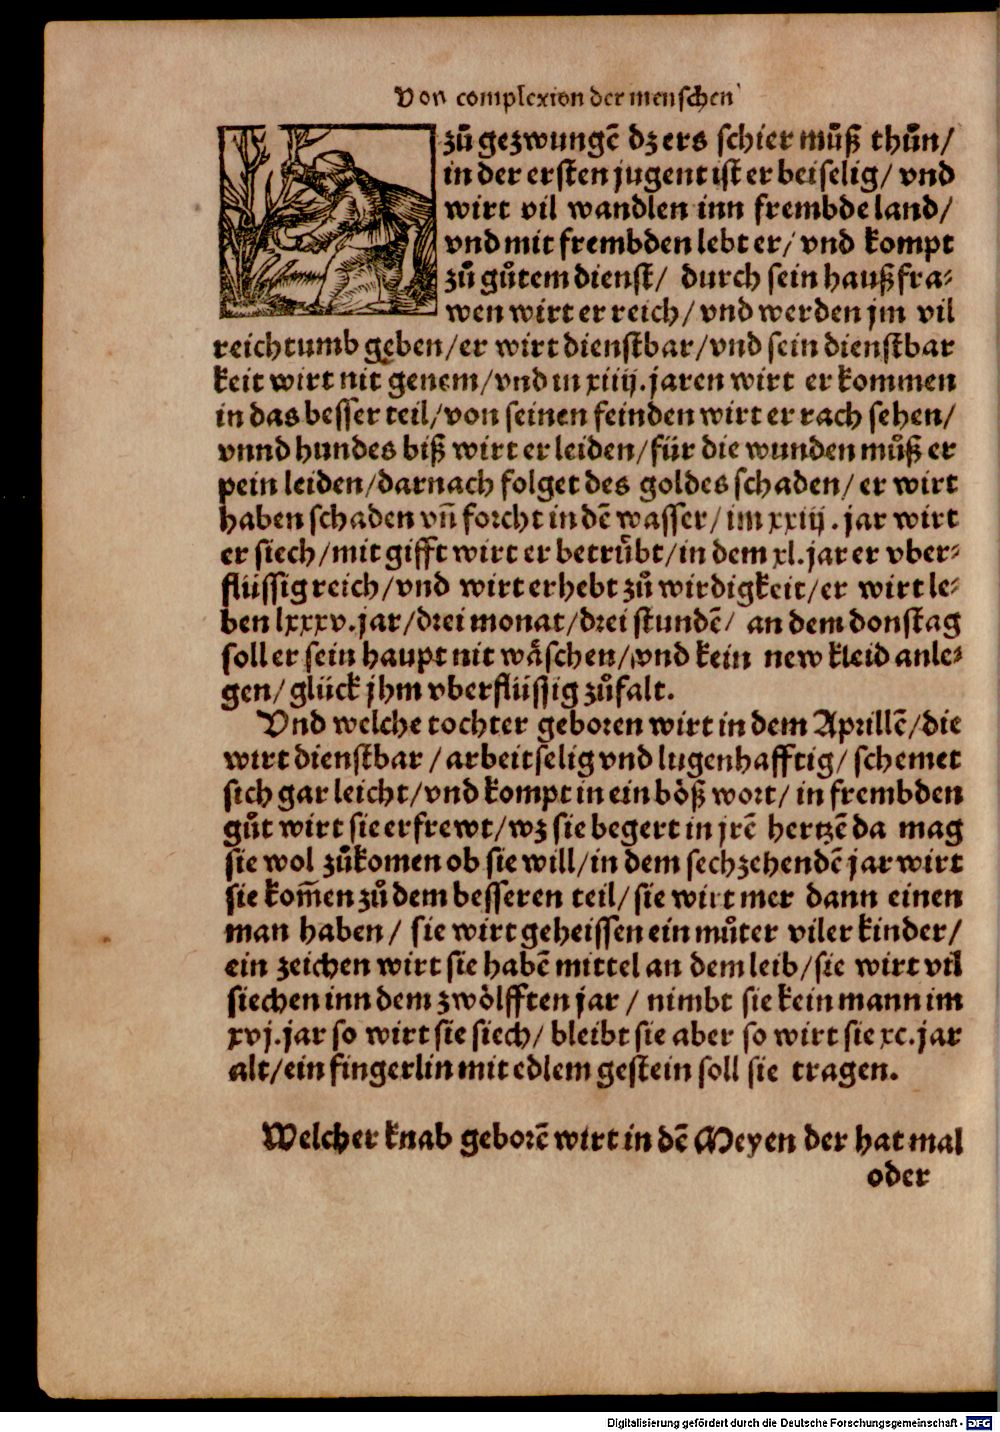 Von complexion der menschen
zů gezwungẽ dz ers schier můß thůn/
in der ersten jugent ist er beiselig/ vnd
wirt vil wandlen inn frembde land/
vnd mit frembden lebt er/ vnd kompt
zů gůtem dienst/ durch sein haußfra⸗
wen wirt er reich/ vnd werden jm vil
reichtumb geben/er wirt dienstbar/vnd sein dienstbar
keit wirt nit genem/vnd in xiiij.jaren wirt er kommen
in das besser teil/von seinen feinden wirt er rach sehen/
vnnd hundes biß wirt er leiden/für die wunden můß er
pein leiden/darnach folget des goldes schaden/ er wirt
haben schaden vñ forcht in dẽ wasser/ im xxiij. jar wirt
er siech/mit gifft wirt er betrůbt/in dem xl.jar er vber⸗
flüssig reich/vnd wirt erhebt zů wirdigkeit/er wirt le⸗
ben lxxxv.jar/drei monat/drei stundẽ/ an dem donstag
soll er sein haupt nit wäschen/vnd kein new kleid anle⸗
gen/glück jhm vberflüssig zůfalt.
Vnd welche tochter geboren wirt in dem Aprillẽ/die
wirt dienstbar/arbeitselig vnd lugenhafftig/ schemet
sich gar leicht/vnd kompt in ein böß wort/ in frembden
gůt wirt sie erfrewt/wz sie begert in jrẽ hertzẽ da mag
sie wol zůkomen ob sie will/in dem sechzehendẽ jar wirt
sie kom̃en zů dem besseren teil/sie wirt mer dann einen
man haben/ sie wirt geheissen ein můter viler kinder/
ein zeichen wirt sie habẽ mittel an dem leib/sie wirt vil
siechen inn dem zwölfften jar/ nimbt sie kein mann im
xvj.jar so wirt sie siech/ bleibt sie aber so wirt sie xc.jar
alt/ein fingerlin mit edlem gestein soll sie tragen.
Welcher knab geborẽ wirt in dẽ Meyen der hat mal
oder
Digitalisierung gefördert durch die Deutsche Forschungsgemeinschaft - DFG